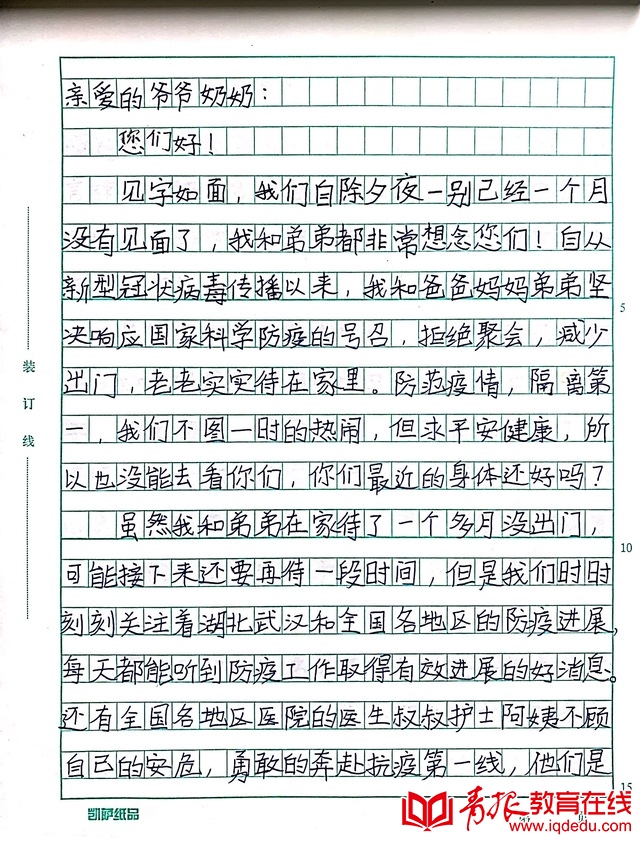 亲爱的爷爷奶奶：
您们好！
见字如面，我们自除夕夜一别已经一个月
没有见面了，我和弟弟都非常想念您们！自从
新型冠状病毒传播以来，我和爸爸妈妈弟弟坚
决响应国家科学防疫的号召，拒绝聚会，减少
出门，老老实实待在家里。防范疫情，隔离第
一，我们不图一时的热闹，但求平安健康，所
以也没能去看你们，你们最近的身体还好吗？
虽然我和弟弟在家待了一个多月没出门，
可能接下来还要再待一段时间，但是我们时时
刻刻关注着湖北武汉和全国各地区的防疫进展，
每天都能听到防疫工作取得有效进展的好消息。
还有全国各地区医院的医生叔叔护士阿姨不顾
自己的安危，勇敢的奔赴抗疫第一线，他们是
装订线
5
10
15
凯萨纸品
青报教育在线
www.iqdedu.com